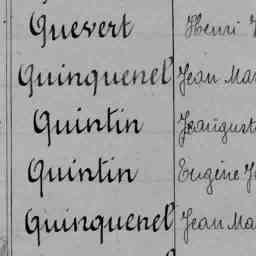 Quevert Henri
Quinquenel Jean Ma
Quintin
Quintin Eugène J
Quinquenel Jean Ma